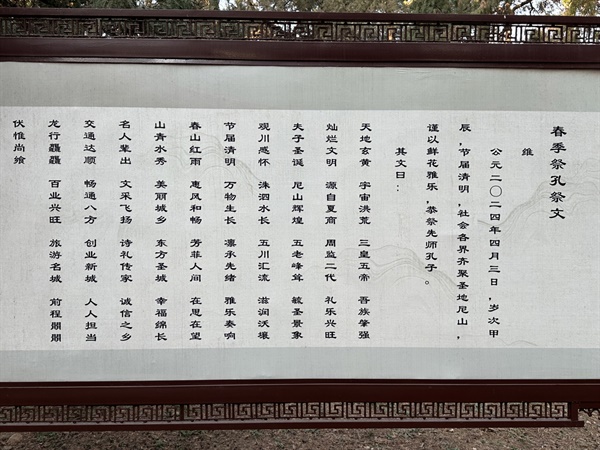 春季祭孔祭文
维
公元二〇二四年四月三日，岁次甲
辰，节届清明，社会各界齐聚圣地尼山，
谨以鲜花雅乐，恭祭先师孔子。
其文曰：
天地玄黄 宇宙洪荒 三皇五帝 吾族肇强
灿烂文明 源自夏商 周监二代 礼乐兴旺
夫子圣诞 尼山辉煌 五老峰耸 毓圣景象
观川感怀 洙泗水长 五川汇流 滋润沃壤
节届清明 万物生长 凛承先绪 雅乐奏响
春山红雨 惠风和畅 芳菲人间 在思在望
山青水秀 美丽城乡 东方圣城 幸福绵长
名人辈出 文采飞扬 诗礼传家 诚信之乡
交通达顺 畅通八方 创业新城 人人担当
龙行龘龘 百业兴旺 旅游名城 前程朤朤
伏惟尚飨